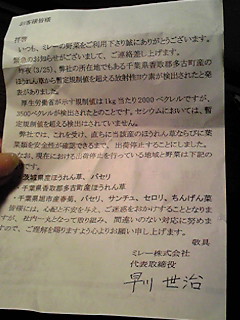 お客様皆様
拝啓
いつも、ミレーの野菜をご利用下さり誠にありがとうございます。
緊急のお知らせがございまして、ご連絡差し上げます。
昨夜(3/25)、弊社の所在地でもある千葉県香取郡多古町産の
ほうれん草から暫定規制値を超える放射性ヨウ素が検出されたと発
表がありました。
厚生労働省が示す規制値は1kg当たり2000ベクレルですが、
3500ベクレルが検出されたとのことです。セシウムにおいては、暫
定規制値を超える検出はされていません。
弊社では、これを受け、直ちに当該産のほうれん草ならびに葉
菜類を安全性が確認できるまで、出荷停止することにしました。
なお、現在における出荷停止を行っている地域と野菜は下記の
です。
茨城県産ほうれん草、パセリ
・千葉県香取郡多古町産ほうれん草
・千葉県旭市産春菊、パセリ、サンチェ、セロリ、ちんげん菜
皆様には、心配と不安を与え、ご迷惑をおかけすることとなりま
すが、社内一丸となって取り組み、間違いのない対応に努めま
すので、ご理解を賜りますよう心よりお願い申し上げます。
敬具
ミレー株式会社
代表取締役
早川 世治